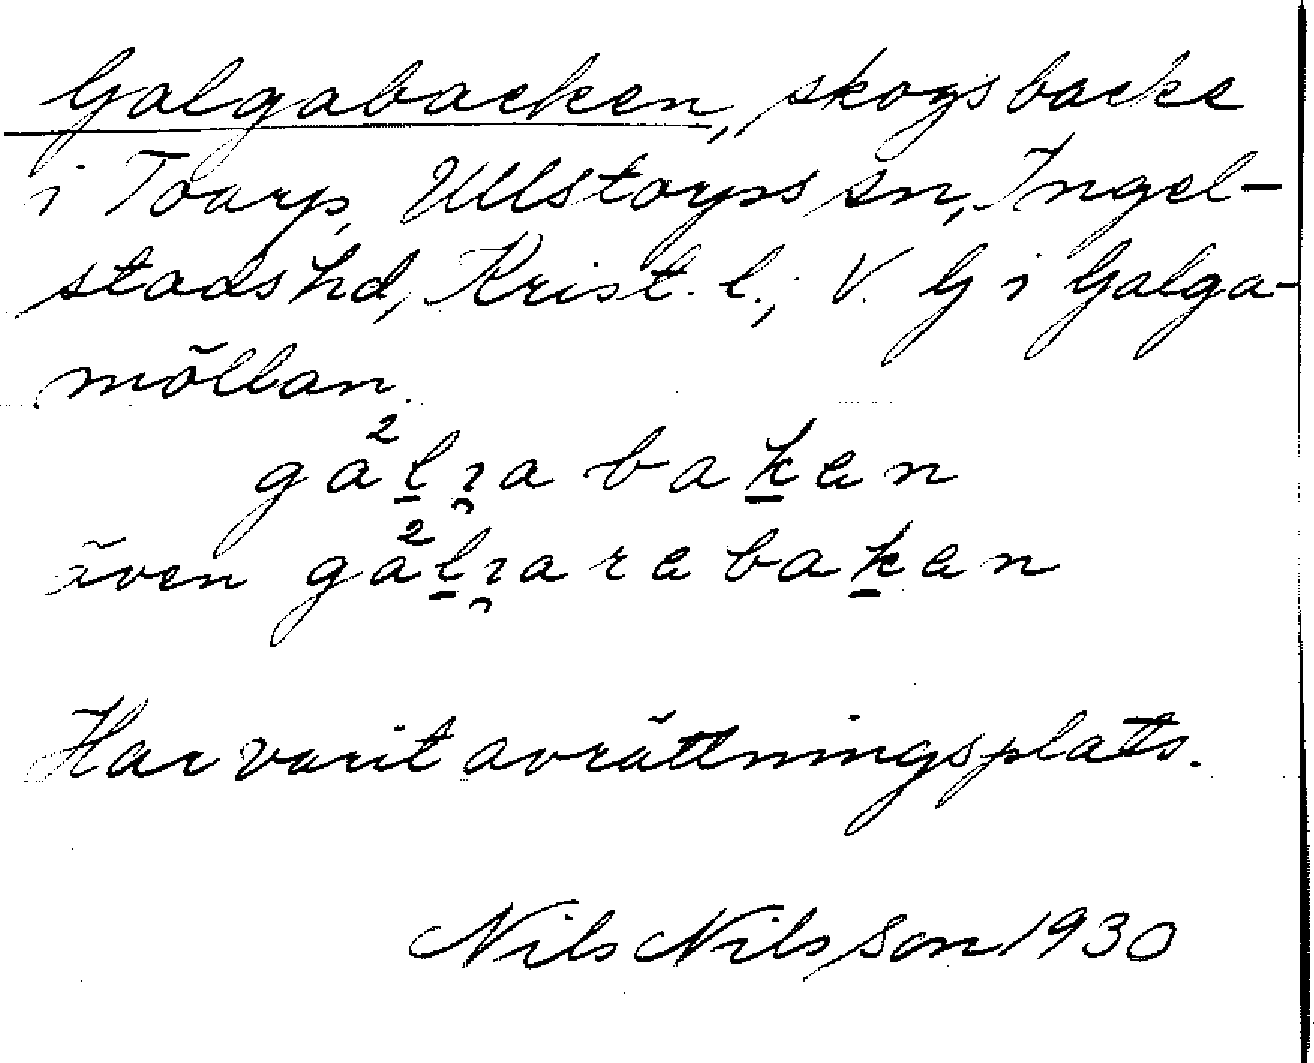 Galgabacken, skogsbacke
i Toarp, Ullstorps sn, Ingel-
stads hd, Krist. l.; V. G i Galga-
möllan.
gál̠ı̯a bak̠en
även gál̠ı̯are bak̠en
Har varit avrättningsplats.
Nils Nilsson 1930